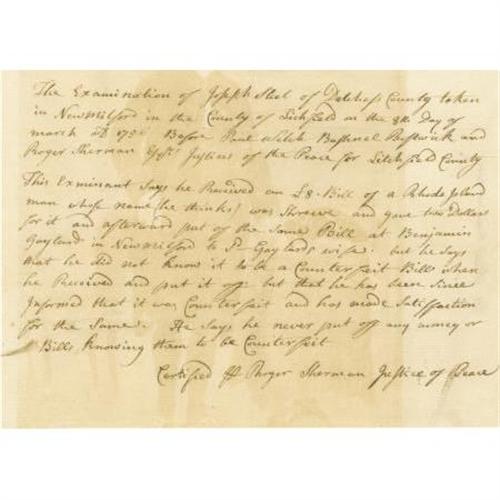 The Examination of Joseph Steel of Dutchess County taken
in New Milford in the County of Litchfield on the 8th Day of
march 175 Before Paul Welch Bushnel Bostwick and
Roger Sherman Esqrs Justices of the Peace for Litchfield County
This Examinant Says he Received an £8-Bill of a Rhode Island
man whose name (he thinks) was Shreeve and gave two Dollars
for it and afterward put of the Same Bill at Benjamin
Gaylord in New Milford to sd Gaylards wife. but he Says
that he did not know it to be a Counterfeit Bill when
he Received and put it off but that he has been Since
Informed that it was Counterfeit and has made Satisfaction
for the Same. He Says he never put off any money or
Bills Knowing them to be Counterfeit
Certified Roger Sherman Justice of Peace